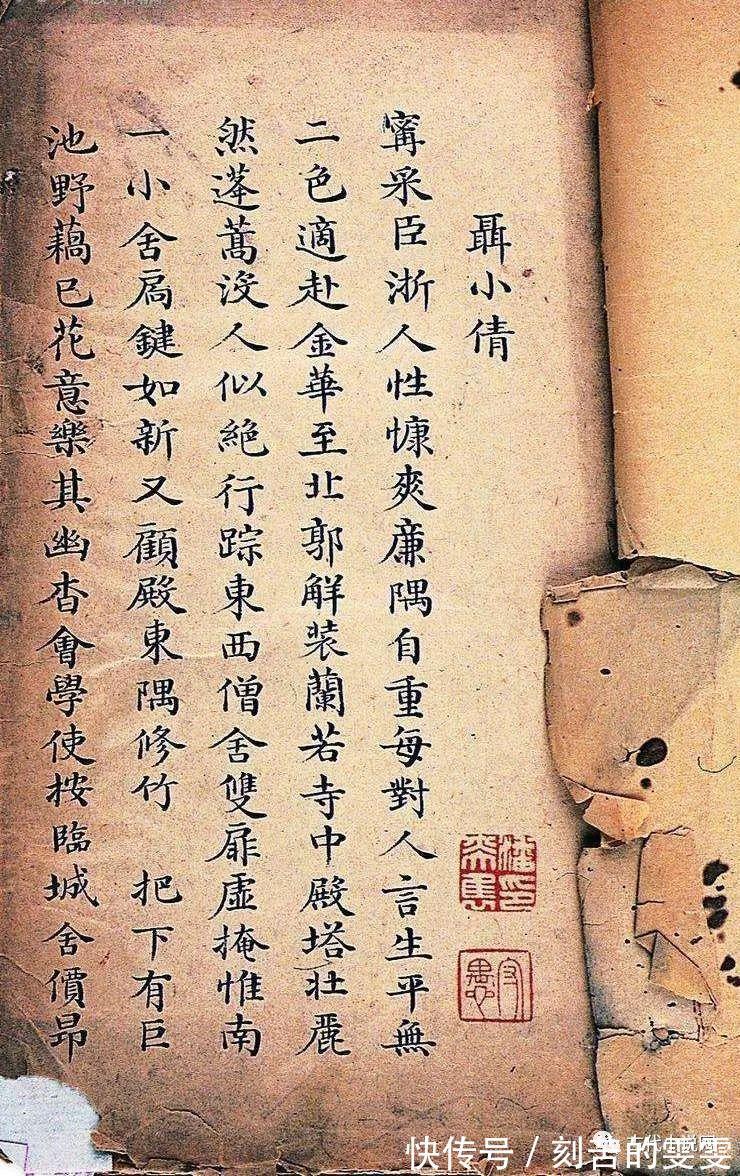 聶小倩
寗采臣浙人性慷爽廉隅自重每對人言生平無
二色適赴金華至北郭解装蘭若寺中殿塔壮麗
然蓬蒿没人似絶行踪東西僧舍雙扉虚掩惟南
一小舍扄鍵如新又顧殿東隅修竹 把下有巨
池野藕已花意樂其幽杳會學使按臨城舍價昂
守愚
代小说网
快传号 / 刻苦的雯雯